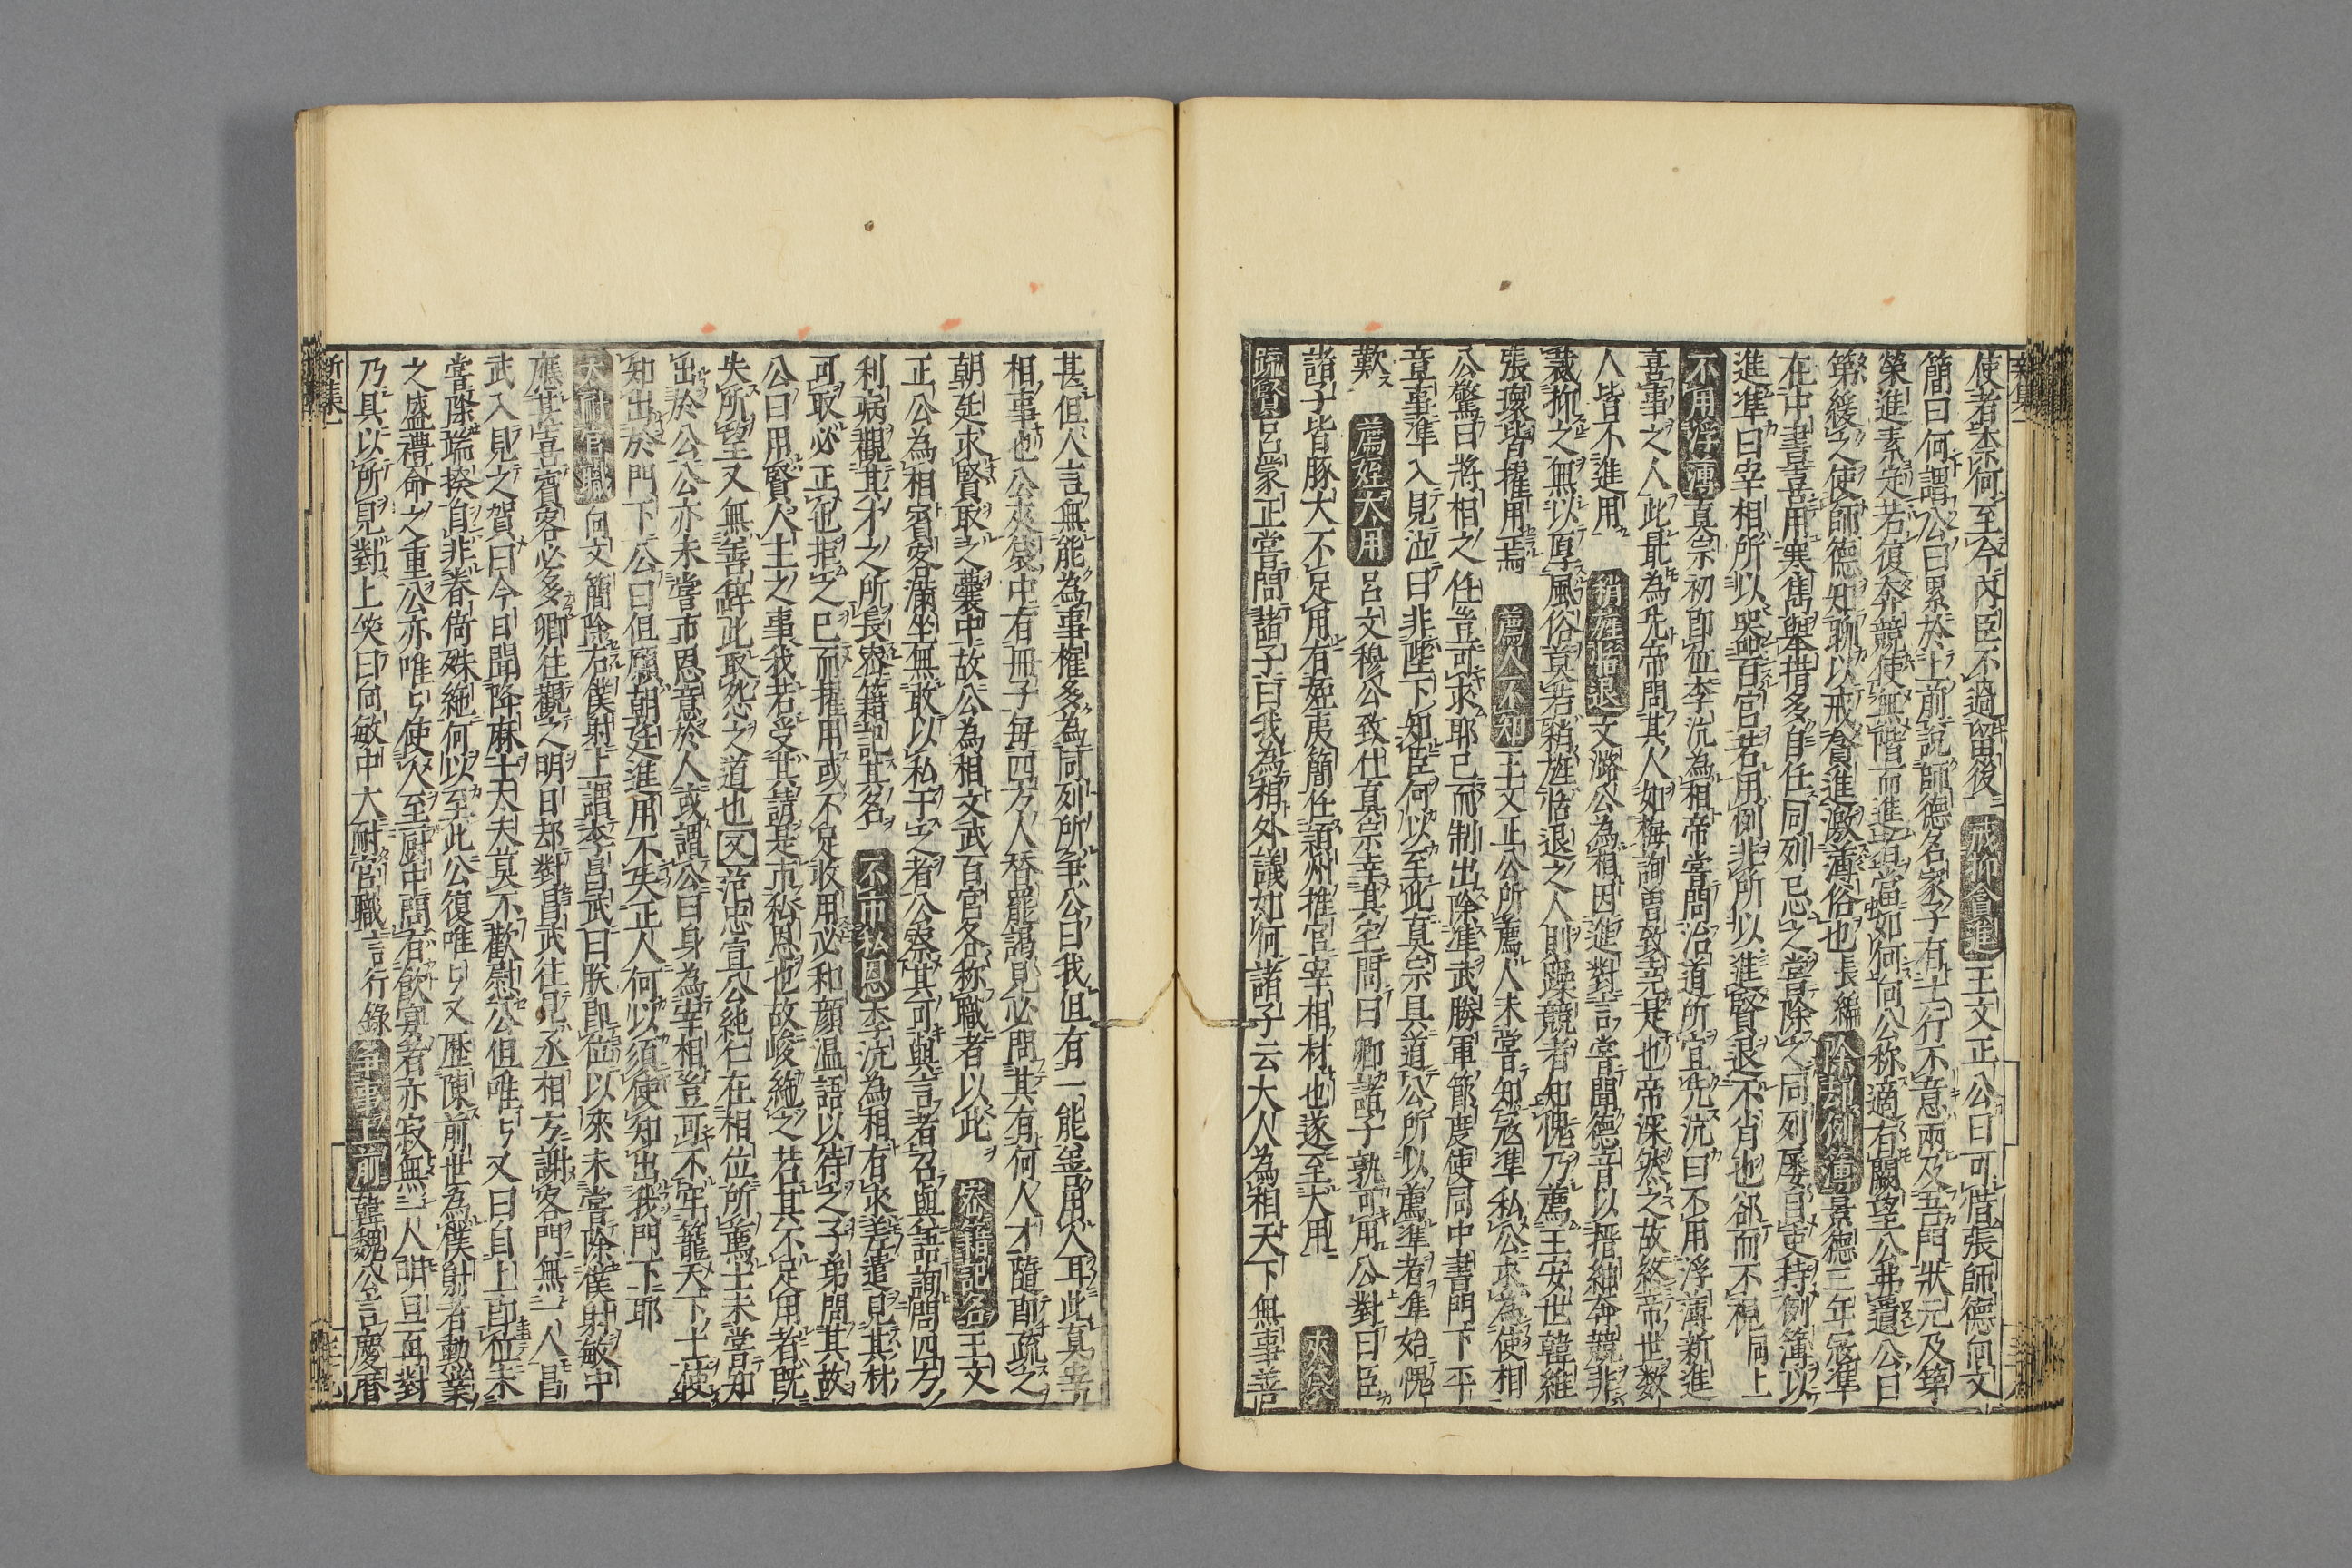 使者柰何至今內臣不過留後 戒抑貪進 王文正公曰可惜張師德向文
簡曰何謂公曰累於上前說師德名家子有士行不意兩及吾門狀元及第
榮進素定若復奔競使無階而進者當如何向公稱適有闕望公弗遺公曰
第緩之使師德知聊以戒貪進激薄俗也長編 除却例簿 景德三年寇準
在中書喜用寒雋與本措多自任同列忌之嘗除之同列屢目吏持例簿以
進準曰宰相所以器百官若用例非所以進賢退不肖也卻而不視同上
不用浮薄 真宗初即位李沆為相帝嘗問治道所宜先沆曰不用浮薄新進
喜事之人此最為先帝問其人如梅詢曾致堯是也帝深然之故終帝世数
人皆不進用 稍旌恬退 文潞公為相因進對言嘗聞德音以搢紳奔競非
裁抑之無以厚風俗莫若稍旌恬退之人則躁競者知愧乃薦王安世韓維
張瓌皆擢用焉 薦人不知 王文正公所薦人未嘗知寇準私公求為使相
公驚曰將相之任豈可求耶已而制出除準武勝軍節度使同中書門下平
章事準入見泣曰非陛下知臣何以至此真宗具道公所以薦準者準始愧
歎 薦姪大用 呂文穆公致仕真宗幸其宅問曰卿諸子孰可用公對曰臣
諸子皆豚犬不足用有姪夷簡任穎州推官宰相材也遂至大用 夾袋
疏賢 呂蒙正嘗問諸子曰我為相外議如何諸子云大人為相天下無事善
甚但人言無能為事權多為同列所争公曰我但有一能善用人耳此真宰
相事也公夾袋中有冊子每四方人替罷謁見必問其有何人才隨即疏之
朝廷求賢取之囊中故公為相文武百官各称職者以此 密籍記名 王文
正公為相賓客滿坐無敢以私干之者公察其可與言者召與語詢問四方
利病觀其才之所長密籍記其名 不市私恩 李沆為相有求差遣見其材
可取必正色拒之已而擢用或不足收用必和顔温語以待之子弟問其故
公曰用賢人主之事我若受其請是市私恩也故峻絶之若其不足用者既
失所望又無善辞此取怨之道也 又 范忠宣公純仁在相位所薦士未嘗知
出於公公亦未嘗市恩意於人或謂公曰身為宰相豈可不牢籠天下士使
知出於門下公曰但願朝廷進用不失正人何以須使知出我門下耶
大耐官職 向文簡除右僕射上謂李昌武曰朕即位以來未嘗除僕射敏中
應甚喜賓客必多卿往觀之明日却對昌武往見丞相方謝客門無一人昌
武入見之賀曰今日聞降麻士大夫莫不歡慰公但唯々又曰自上即位未
嘗除端揆自非眷倚殊絶何以至此公復唯々又歴陳前世為僕射者勳業
之盛禮命之重公亦唯々使人至厨中問有飲宴者亦寂無一人明日再對
乃具以所見對上笑曰向敏中大耐官職言行錄 争事上前 韓魏公言慶曆
新集一